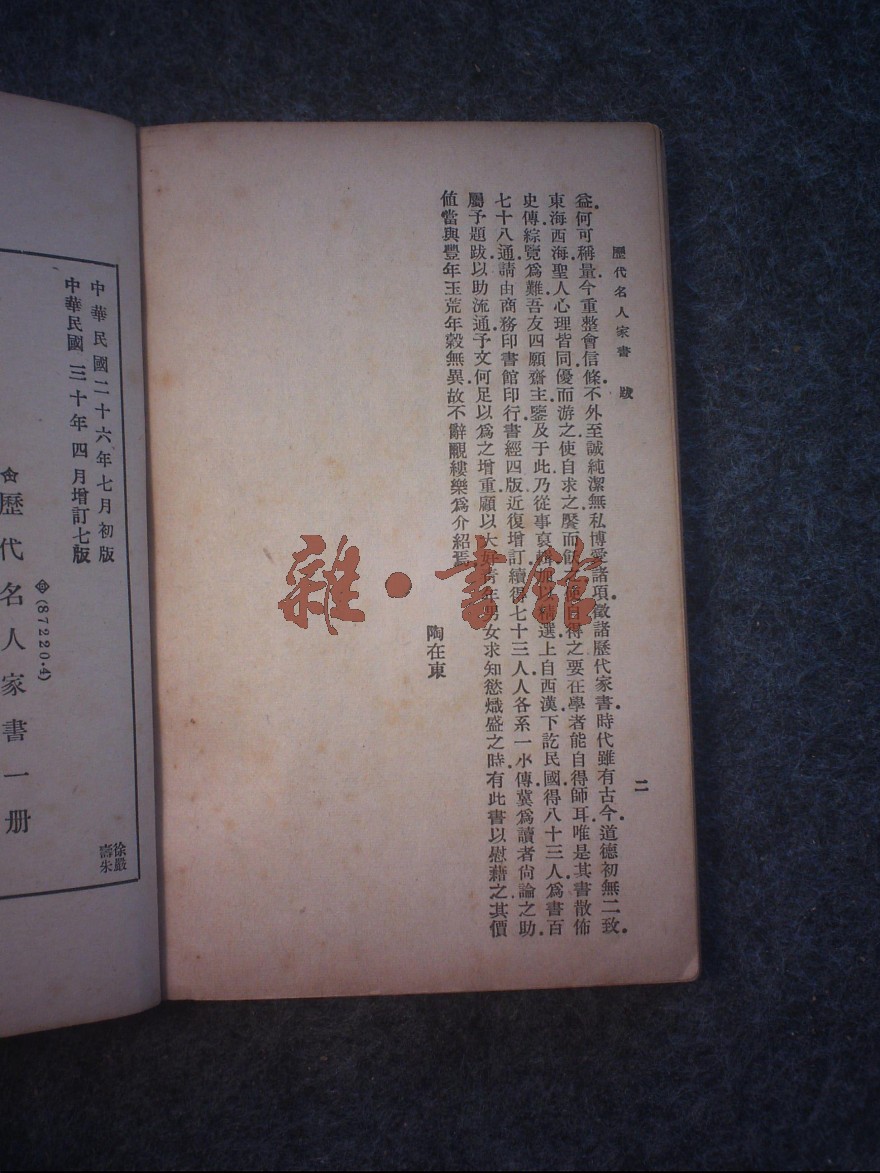 歷代名人家書 跋
二
益.何可稱量.今重整會信條.不外至誠純潔無私博愛諸項.徵諸歷代家書.時代雖有古今.道德初無二致.
東海西海聖人.心理皆同.優而游之.使自求之.饜而飫之.使自得之.要在學者能自得師耳.唯是其書散佈
史傳.綜覽爲難.吾友四願齋主.鑒及于此.乃從事裒輯.加以精選.上自西漢.下訖民國.得八十三人.爲書百
七十八通.請由商務印書館印行.書經四版.近復增訂.續得七十三人.人各系一小傳.冀爲讀者尙論之助.
屬予題跋.以助流通.予文何足以爲之增重.顧以大好青年男女.求知慾熾盛之時.有此書以慰藉之.其價
値當與豐年玉荒年穀無異.故不辭覼縷.樂爲介紹焉.
陶在東
中華民國二十六年七月初版
中華民國三十年四月增訂七版
(87220·4)
歷代名人家書一册
徐嚴
壽朱
雜·書館